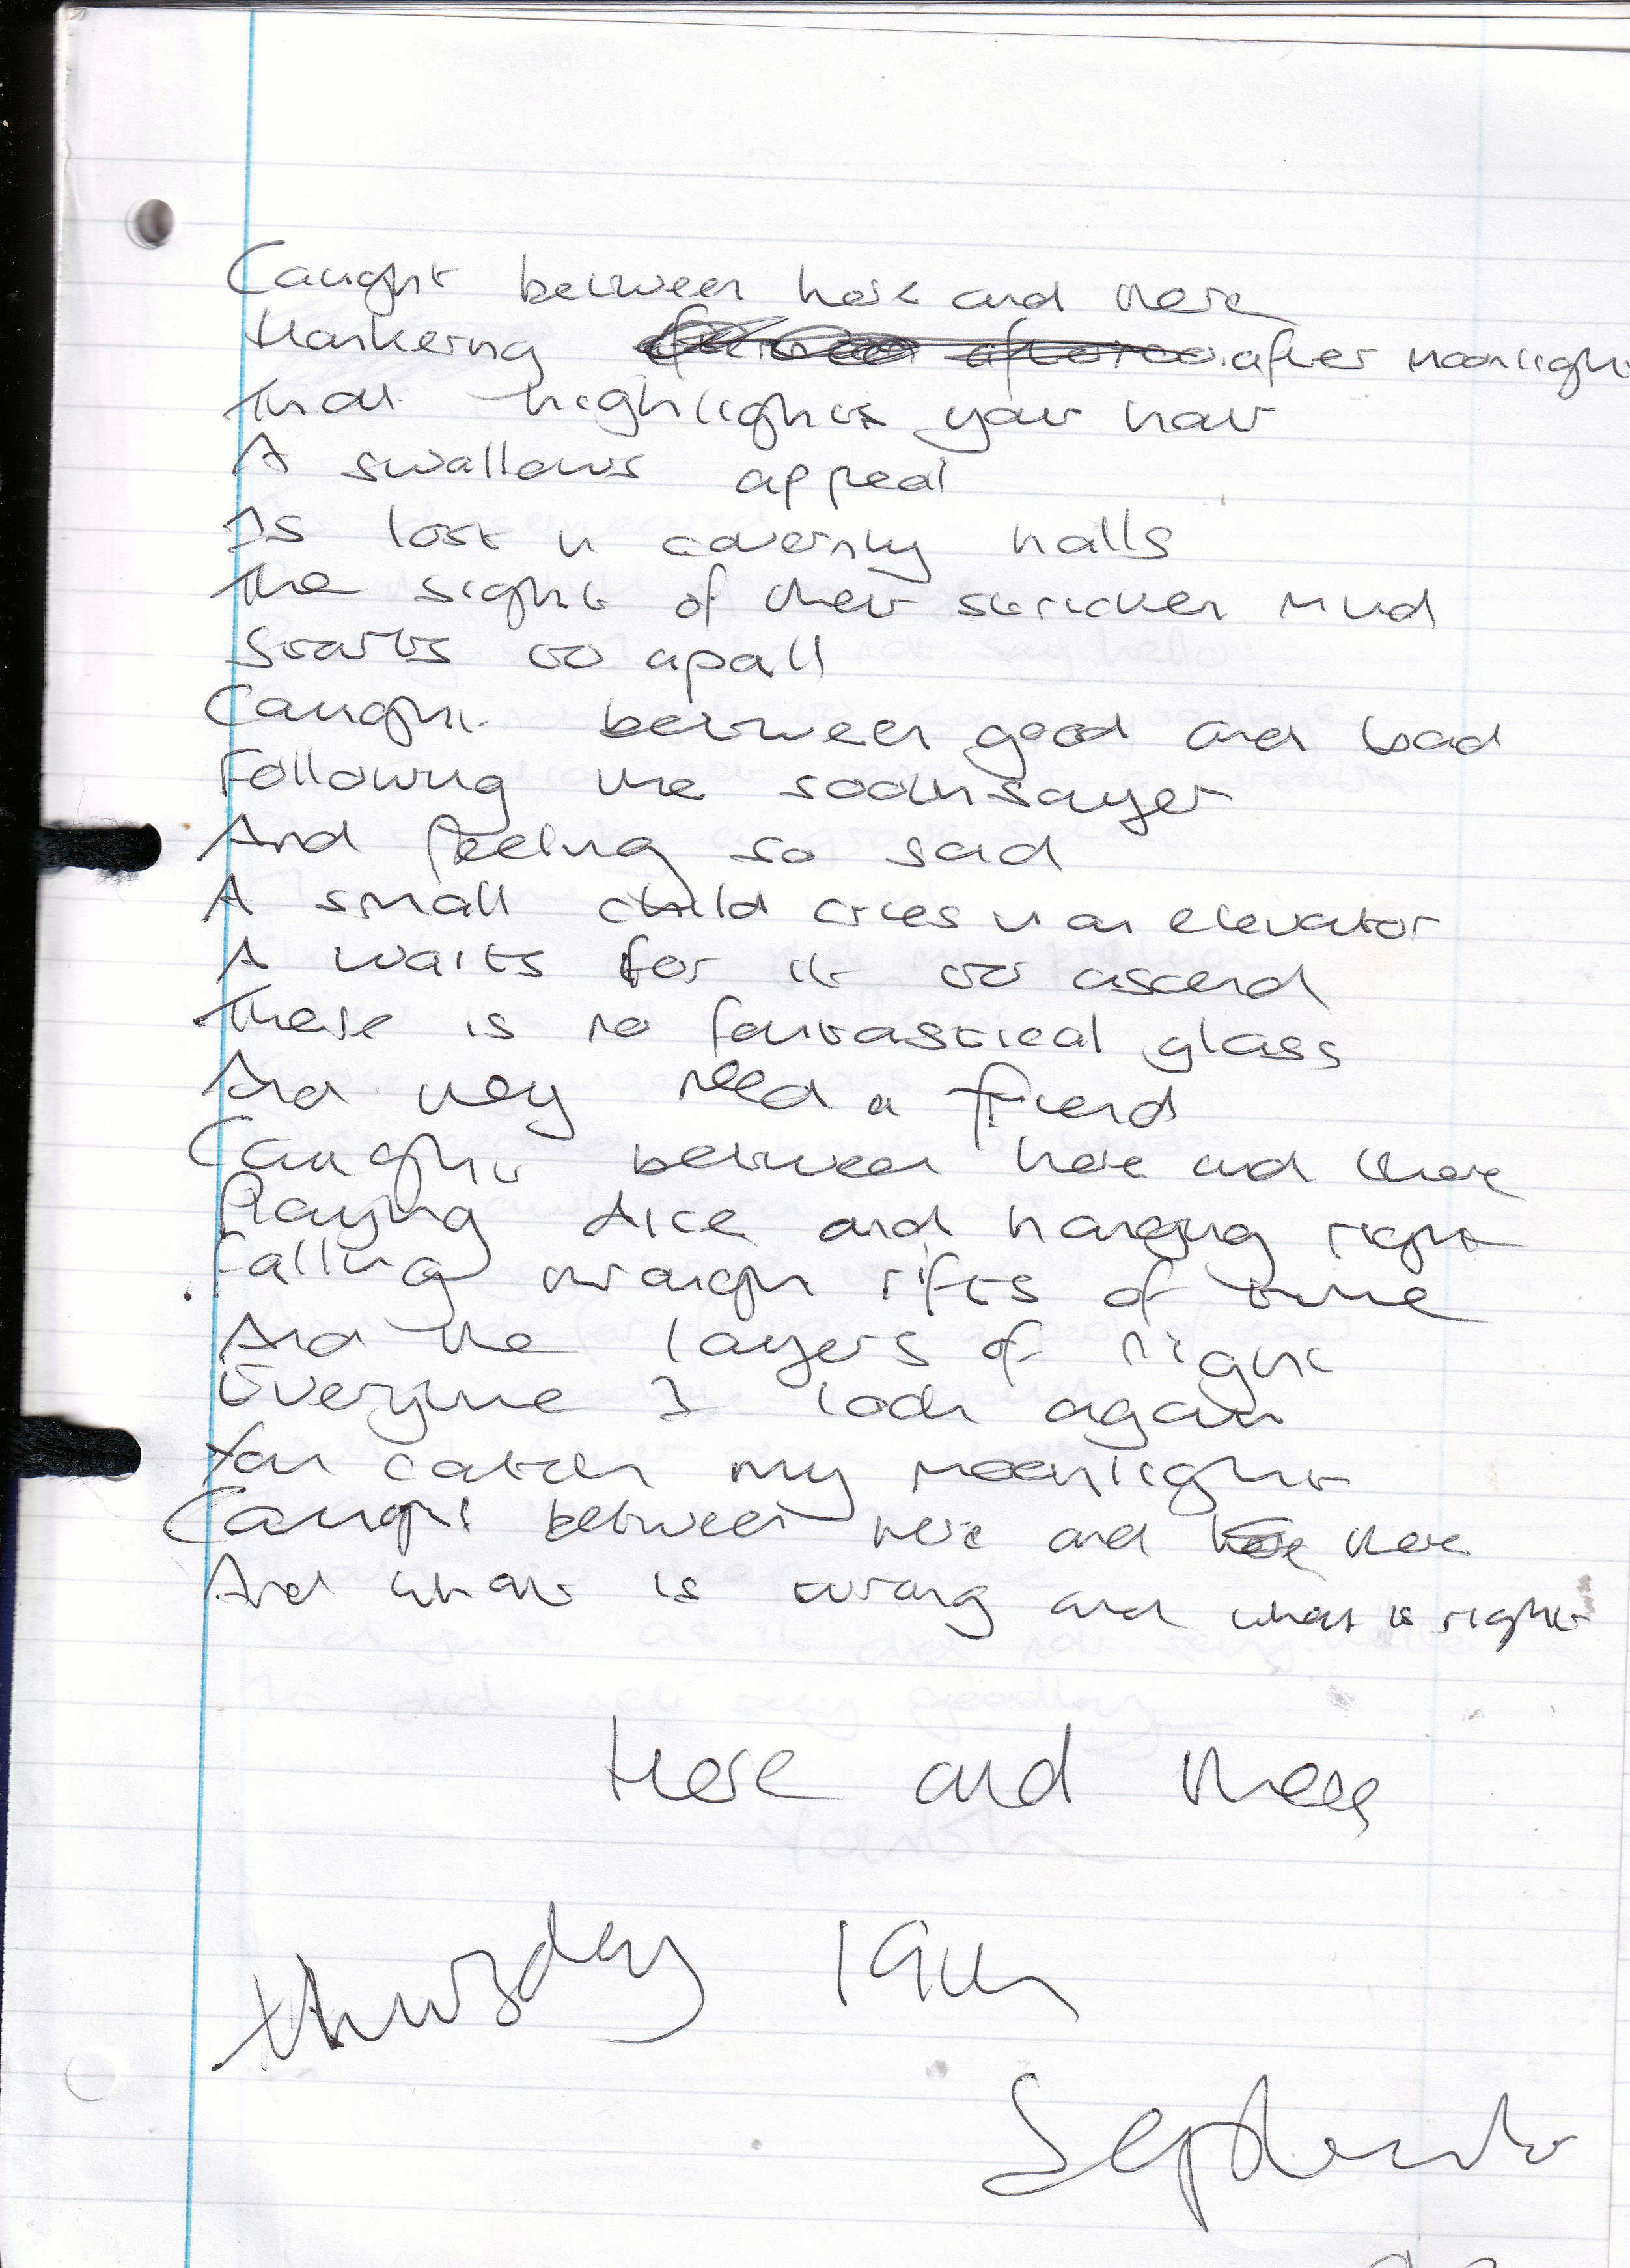 Caught between here and there
Hankering after moonlight
That highlights your hair
A swallows appeal
Is lost in caverny halls
The sight of their stricken mind
Starts to apall
Caught between good and bad
Following the soothsayer
And feeling so sad
A small child cries in an elevator
A waits for it to ascend
There is no fantastical glass
And they need a friend
Caught between here and there
Playing dice and hanging right
Falling through rifts of time
And the layers of night
Everytime I look again
You catch my moonlight
Caught between here and there
And what is wrong and what is right
Here and there
Thursday 19th
September